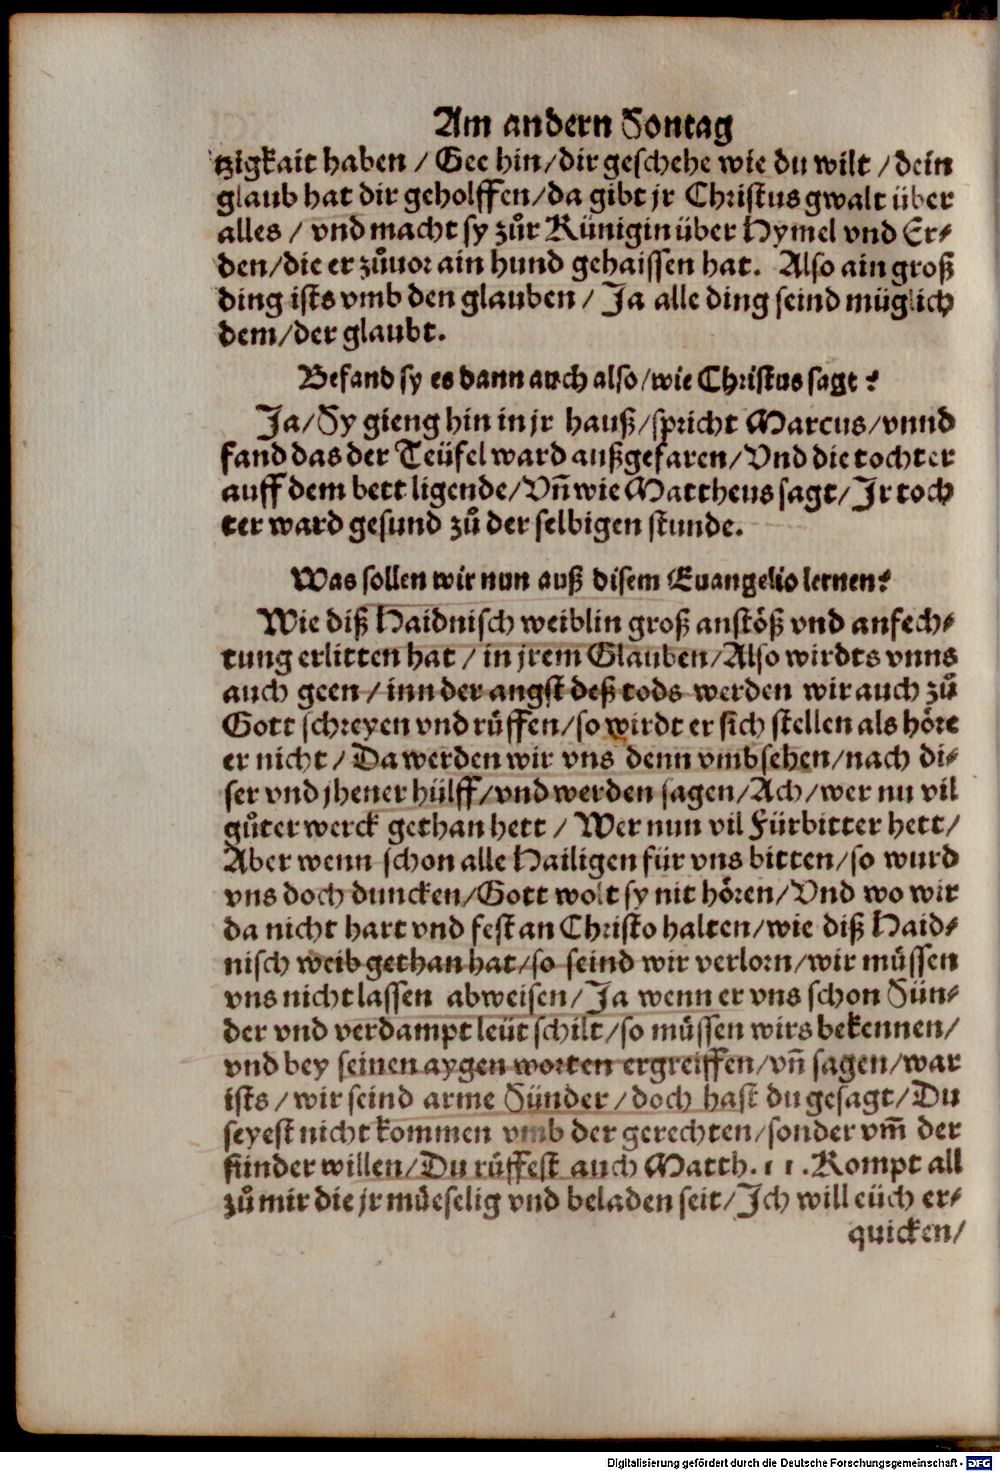 Am andern Sontag
tzigkait haben / Gee hin/dir geschehe wie du wilt / dein
glaub hat dir geholffen/da gibt jr Christus gwalt über
alles / vnd macht sy zůr Künigin über Hymel vnd Er-
den/die er zůuor ain hund gehaissen hat. Also ain groß
ding ists vmb den glauben / Ja alle ding seind müglich
dem/der glaubt.
Befand sy es dann auch also/wie Christus sagt?
Ja/Sy gieng hin in jr hauß/spricht Marcus/vnnd
fand das der Teüfel ward außgefaren/Vnd die tochter
auff dem bett ligende/Vñ wie Mattheus sagt/Jr toch
ter ward gesund zů der selbigen stunde.
Was sollen wir nun auß disem Euangelio lernen?
Wie diß Haidnisch weiblin groß anstöß vnd anfech-
tung erlitten hat / in jrem Glauben/Also wirdts vnns
auch geen / inn der angst deß tods werden wir auch zů
Gott schreyen vnd růffen/so wirdt er sich stellen als höre
er nicht / Da werden wir vns denn vmbsehen/nach di-
ser vnd jhener hülff/vnd werden sagen/Ach/wer nu vil
gůter werck gethan hett / Wer nun vil Fürbitter hett/
Aber wenn schon alle Hailigen für vns bitten/so wurd
vns doch duncken/Gott wolt sy nit hören/Vnd wo wir
da nicht hart vnd fest an Christo halten/wie diß Haid-
nisch weib gethan hat/so seind wir verlorn/wir müssen
vns nicht lassen abweisen/Ja wenn er vns schon Sün-
der vnd verdampt leüt schilt/so müssen wirs bekennen/
vnd bey seinen aygen worten ergreiffen/vñ sagen/war
ists / wir seind arme Sünder / doch hast du gesagt/Du
seyest nicht kommen vmb der gerechten/sonder vm̃ der
sünder willen/Du růffest auch Matth. 11. Kompt all
zů mir die jr müeselig vnd beladen seit/Ich will eüch er-
quicken/
Digitalisierung gefördert durch die Deutsche Forschungsgemeinschaft - DFG